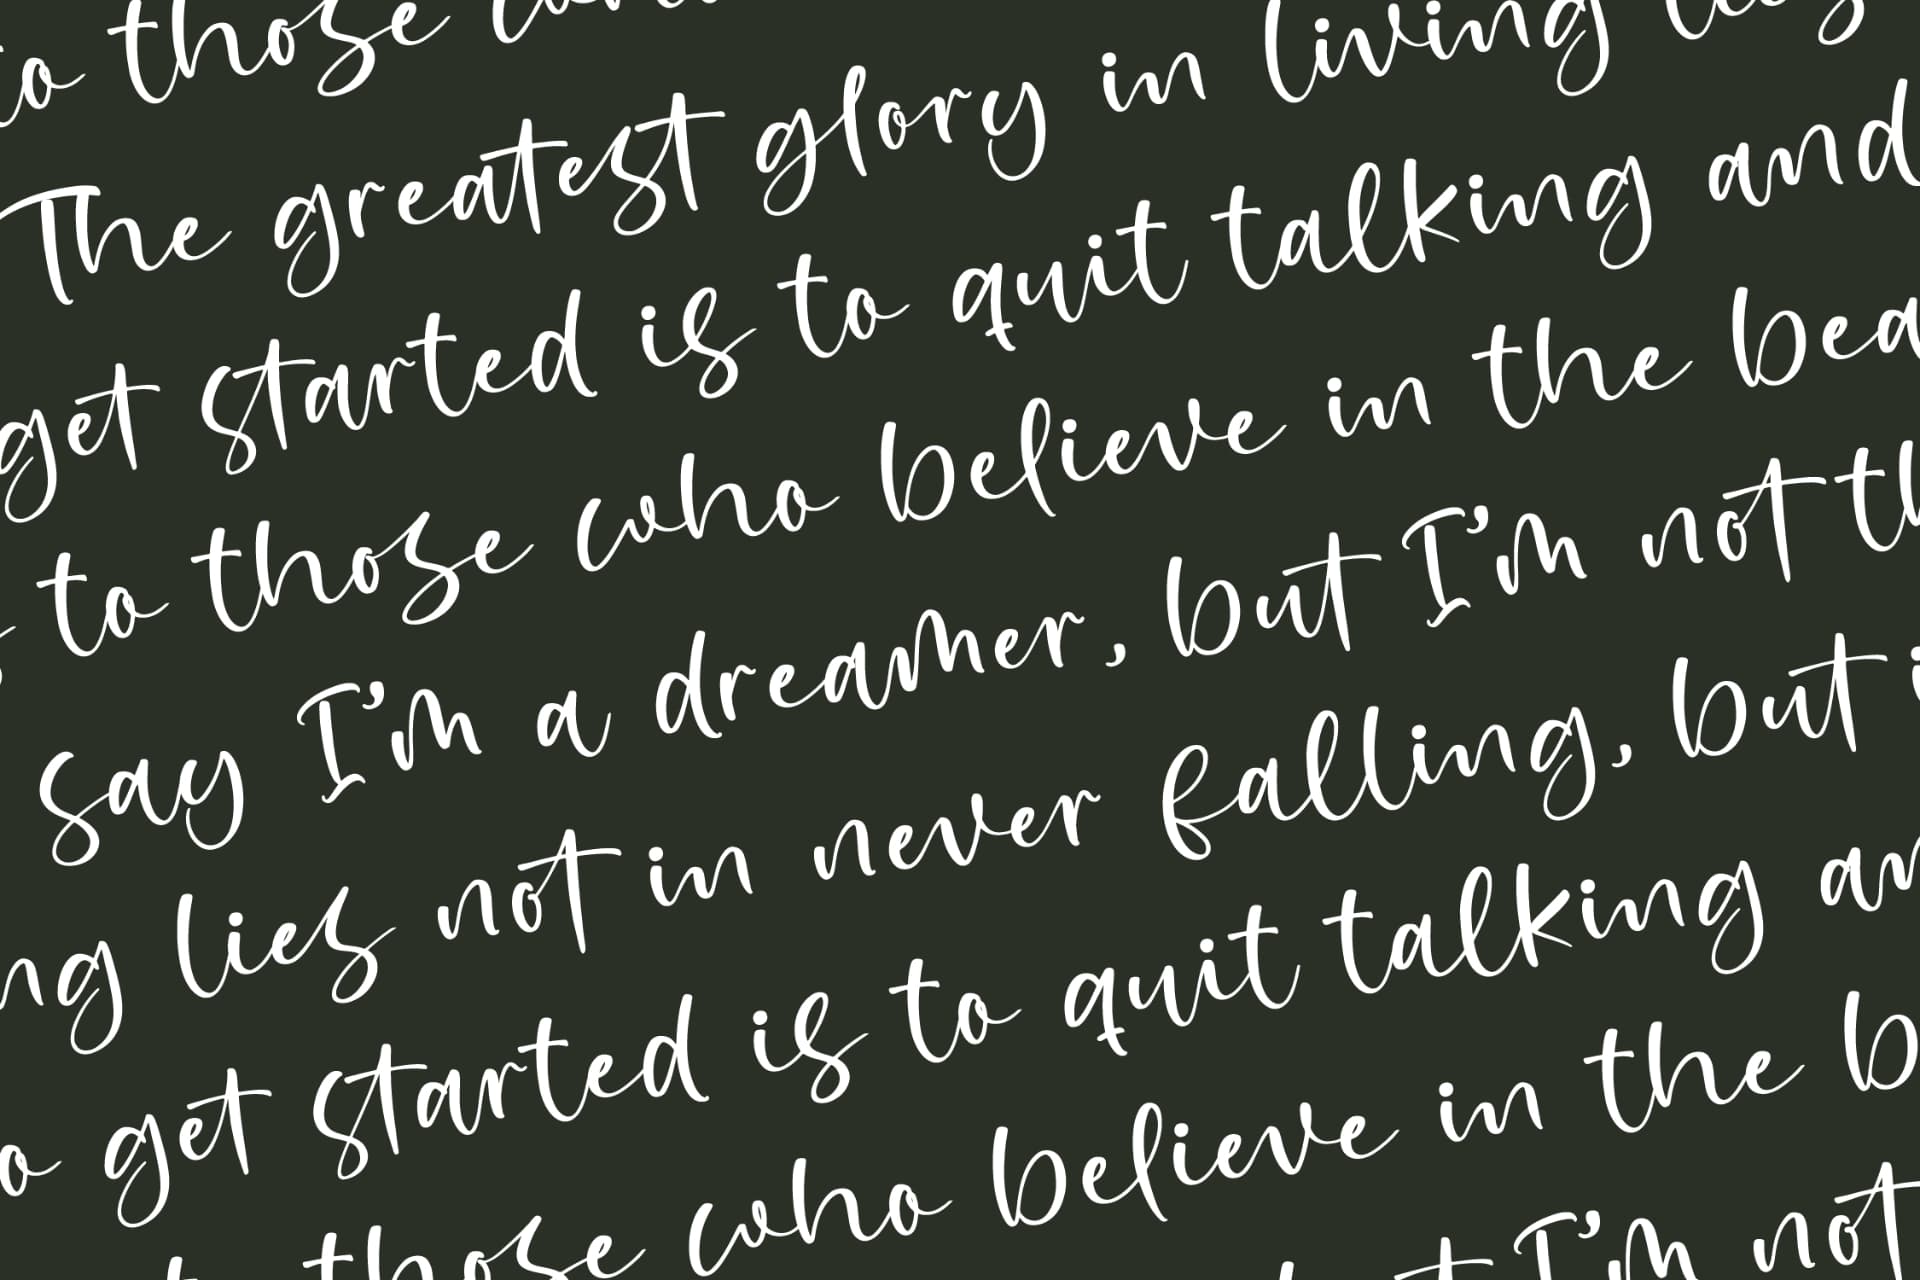 to those
The greatest glory in living
get started is to quit talking and
to those who believe in the bea
say I'm a dreamer, but I'm not th
ng lies not in never falling, but i
o get started is to quit talking an
those who believe in the b
I'm not